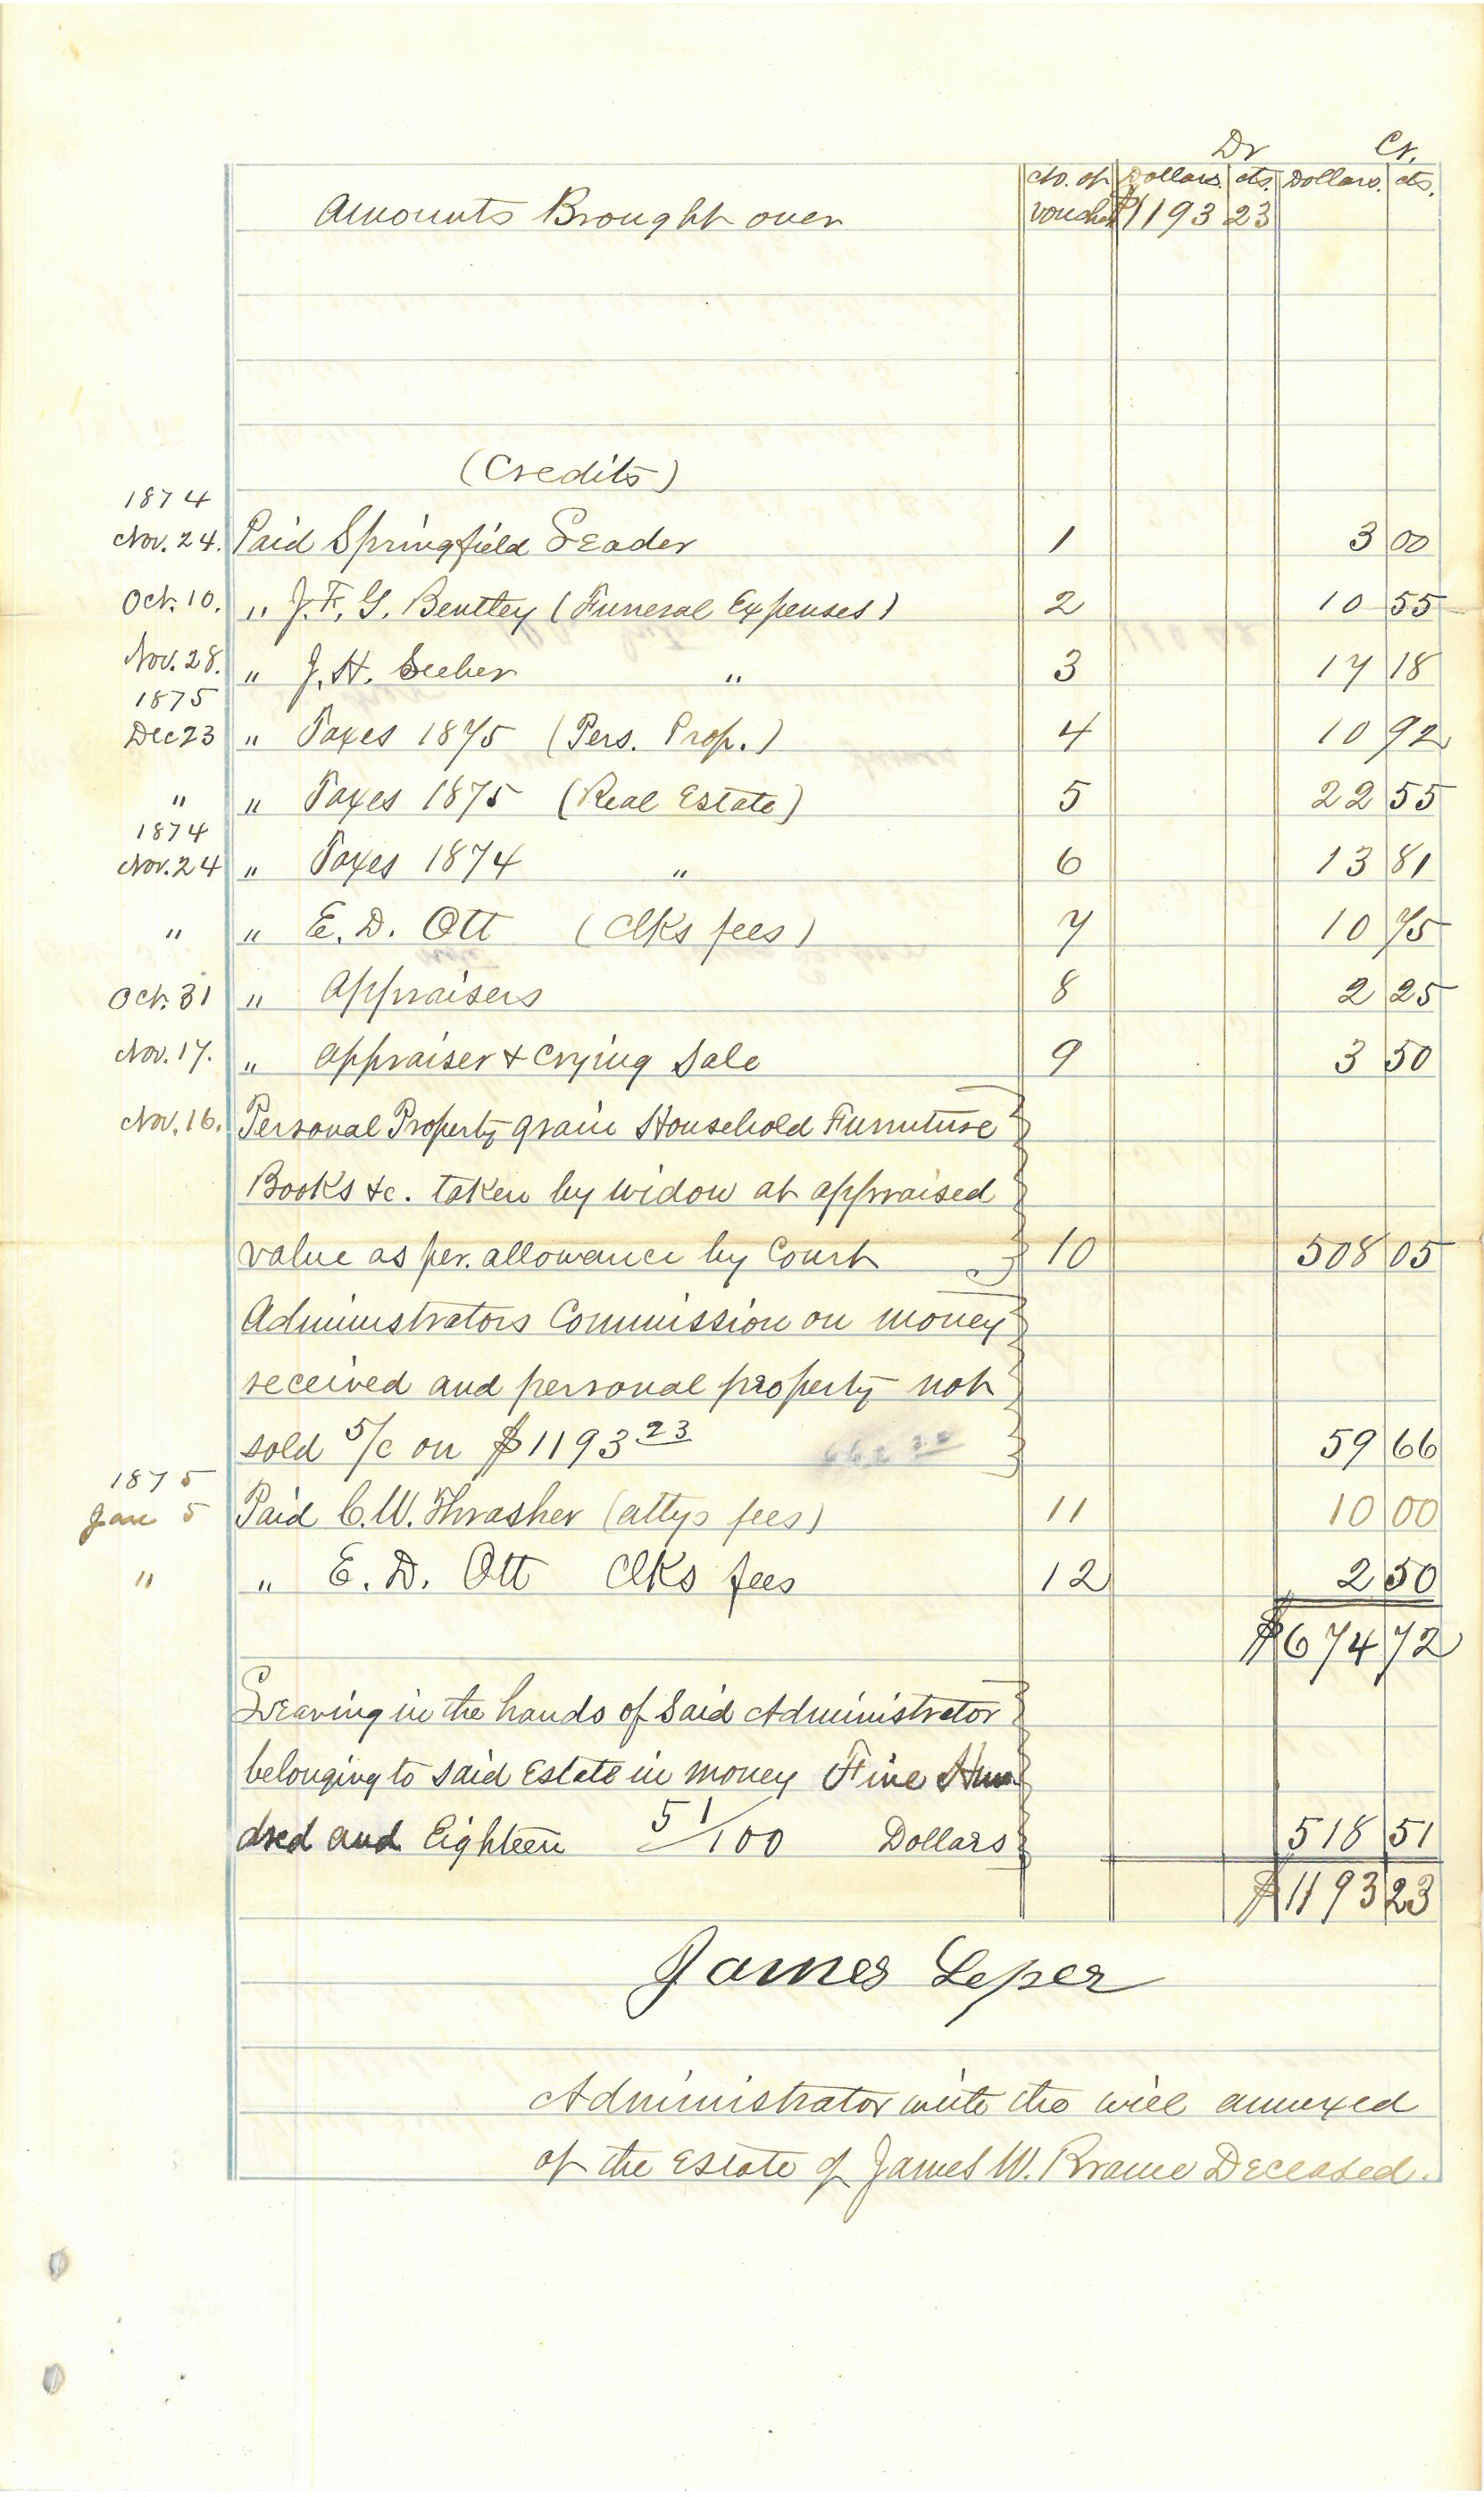 Dr Cr.
No. of Dollars. cts. Dollars. cts.
Amounts Brought over voucher $1193 23
(Credits)
1874
Nov. 24. Paid Springfield Leader 1 3 00
Oct. 10. " J. F. G. Bentley (Funeral Expenses) 2 10 55
Nov. 28. " J. H. Seeher " 3 17 18
1875
Dec 23 " Taxes 1875 (Pers. Prop.) 4 10 92
" " Taxes 1875 (Real Estate) 5 22 55
1874
Nov. 24 " Taxes 1874 " 6 13 81
" " E. D. Ott (Clks fees) 7 10 75
Oct. 31 " Appraisers 8 2 25
Nov. 17. " Appraiser & Crying Sale 9 3 50
Nov. 16. Personal Property grain Household Furnuture
Books &c. taken by widow at appraised
value as per. allowance by Court 10 508 05
Administrators Commission on money
received and personal property not
sold 5/c on $1193 23 59 66
1875
Jan 5 Paid C. W. Thrasher (attys fees) 11 10 00
" " E. D. Ott Clks fees 12 2 50
$674 72
Leaving in the hands of said Administrator
belonging to said Estate in money Five Hun
dred and Eighteen 51/100 Dollars 518 51
$1193 23
James Leper
Administrator with the will annexed
of the Estate of James W. Brame Deceased.